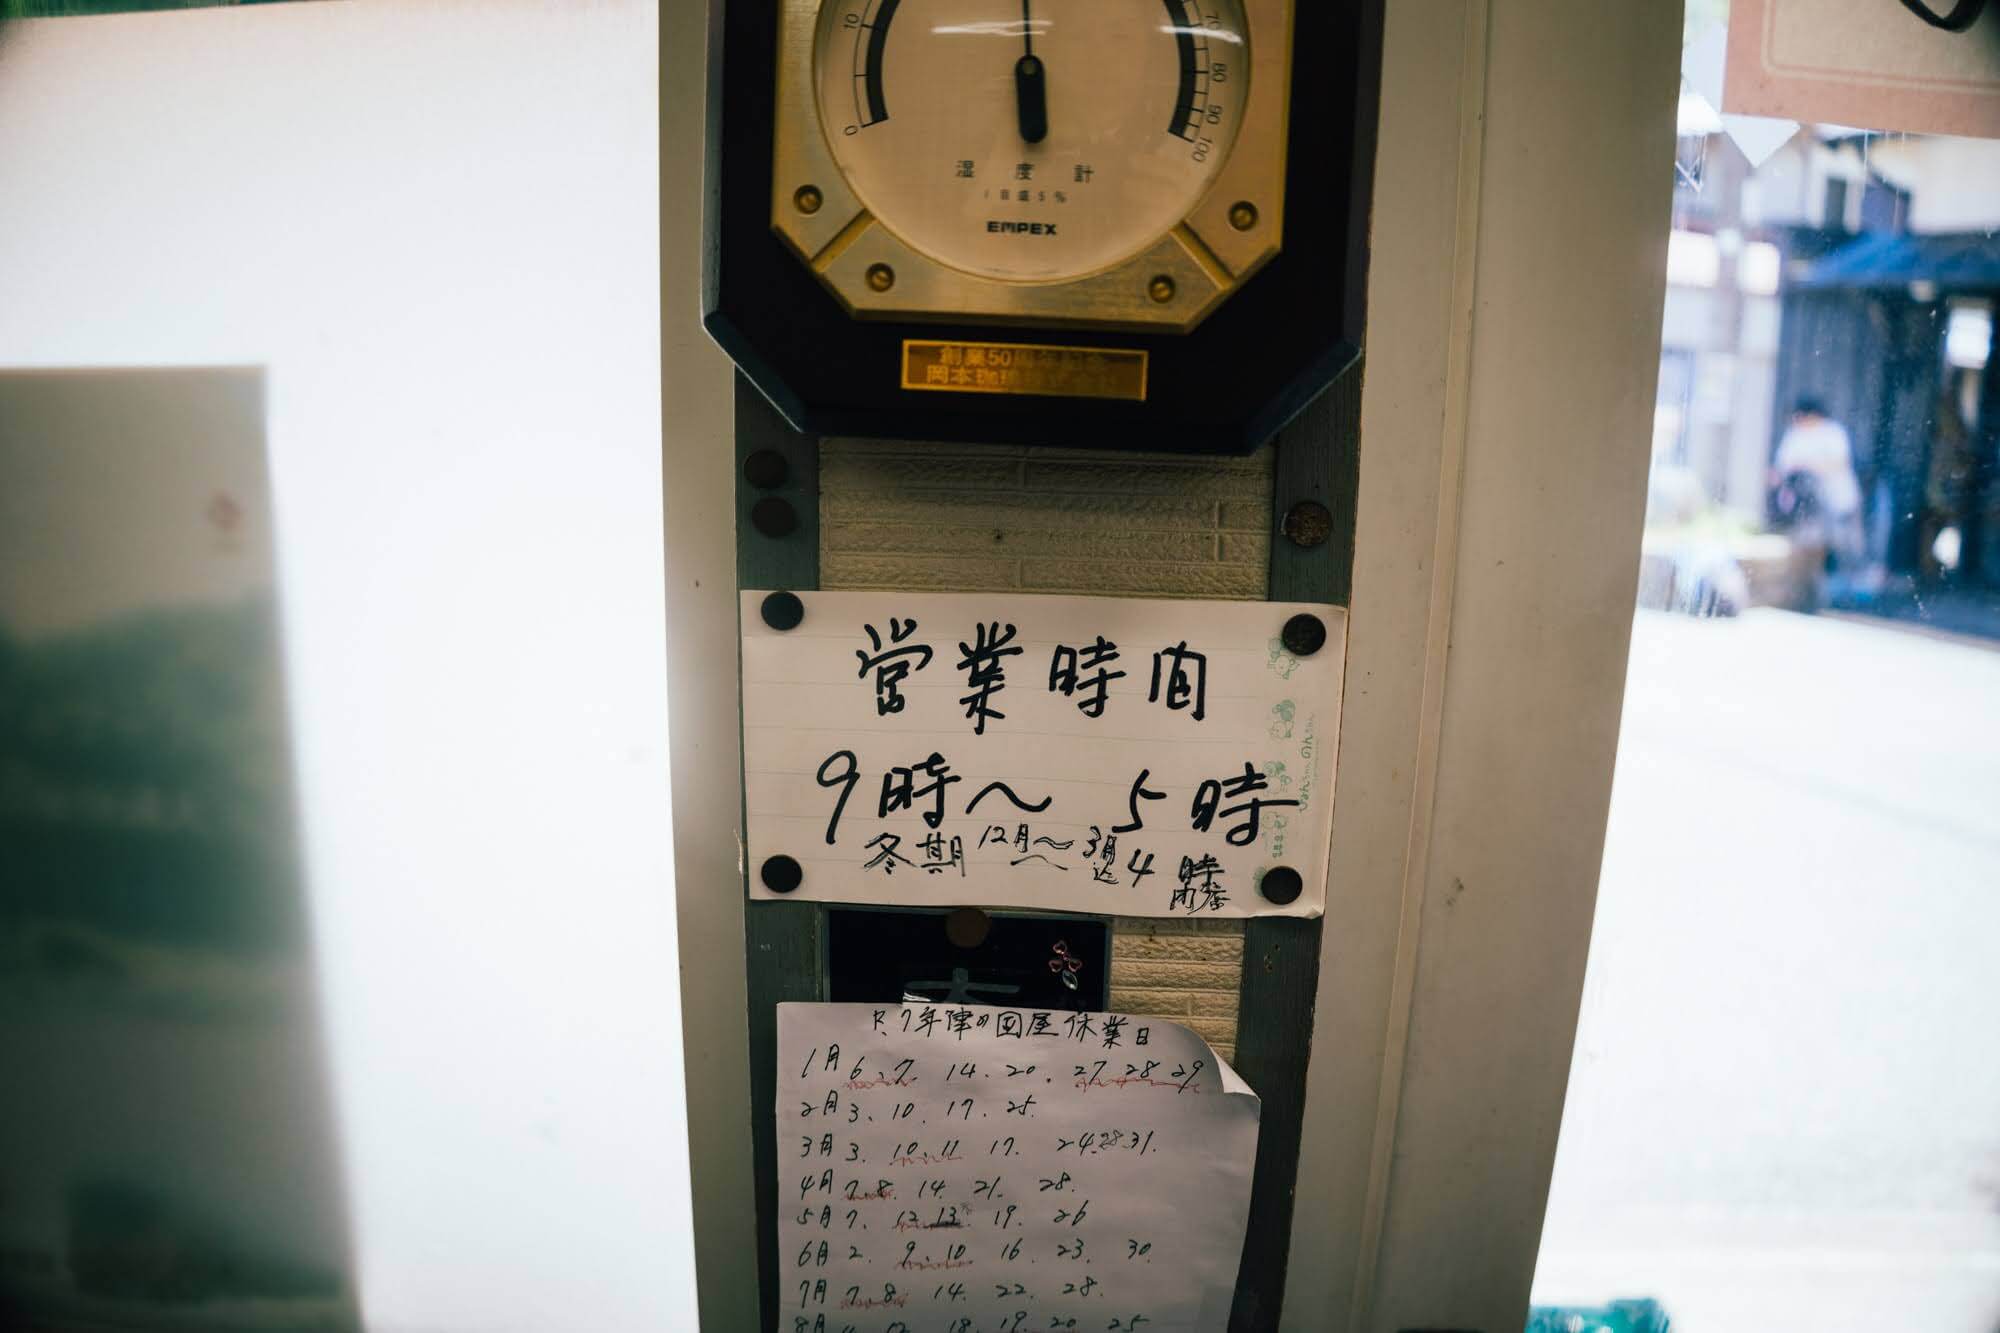 10
0
70
80
90
100
湿度計
1目盛5%
EMPEX
創業50周年記念
岡本珈琲
営業時間
9時〜5時
冬期 12月〜3月迄 4時閉店
R.7年津の国屋休業日
1月 6、7. 14. 20. 27 28 29
2月 3、10. 17. 25.
3月 3. 10、11 17. 24.28.31.
4月 7、8. 14. 21. 28.
5月 7. 12 13. 19. 26
6月 2. 9、10. 16. 23. 30.
7月 7、8. 14. 22. 28.
8月 18. 19. 20. 25